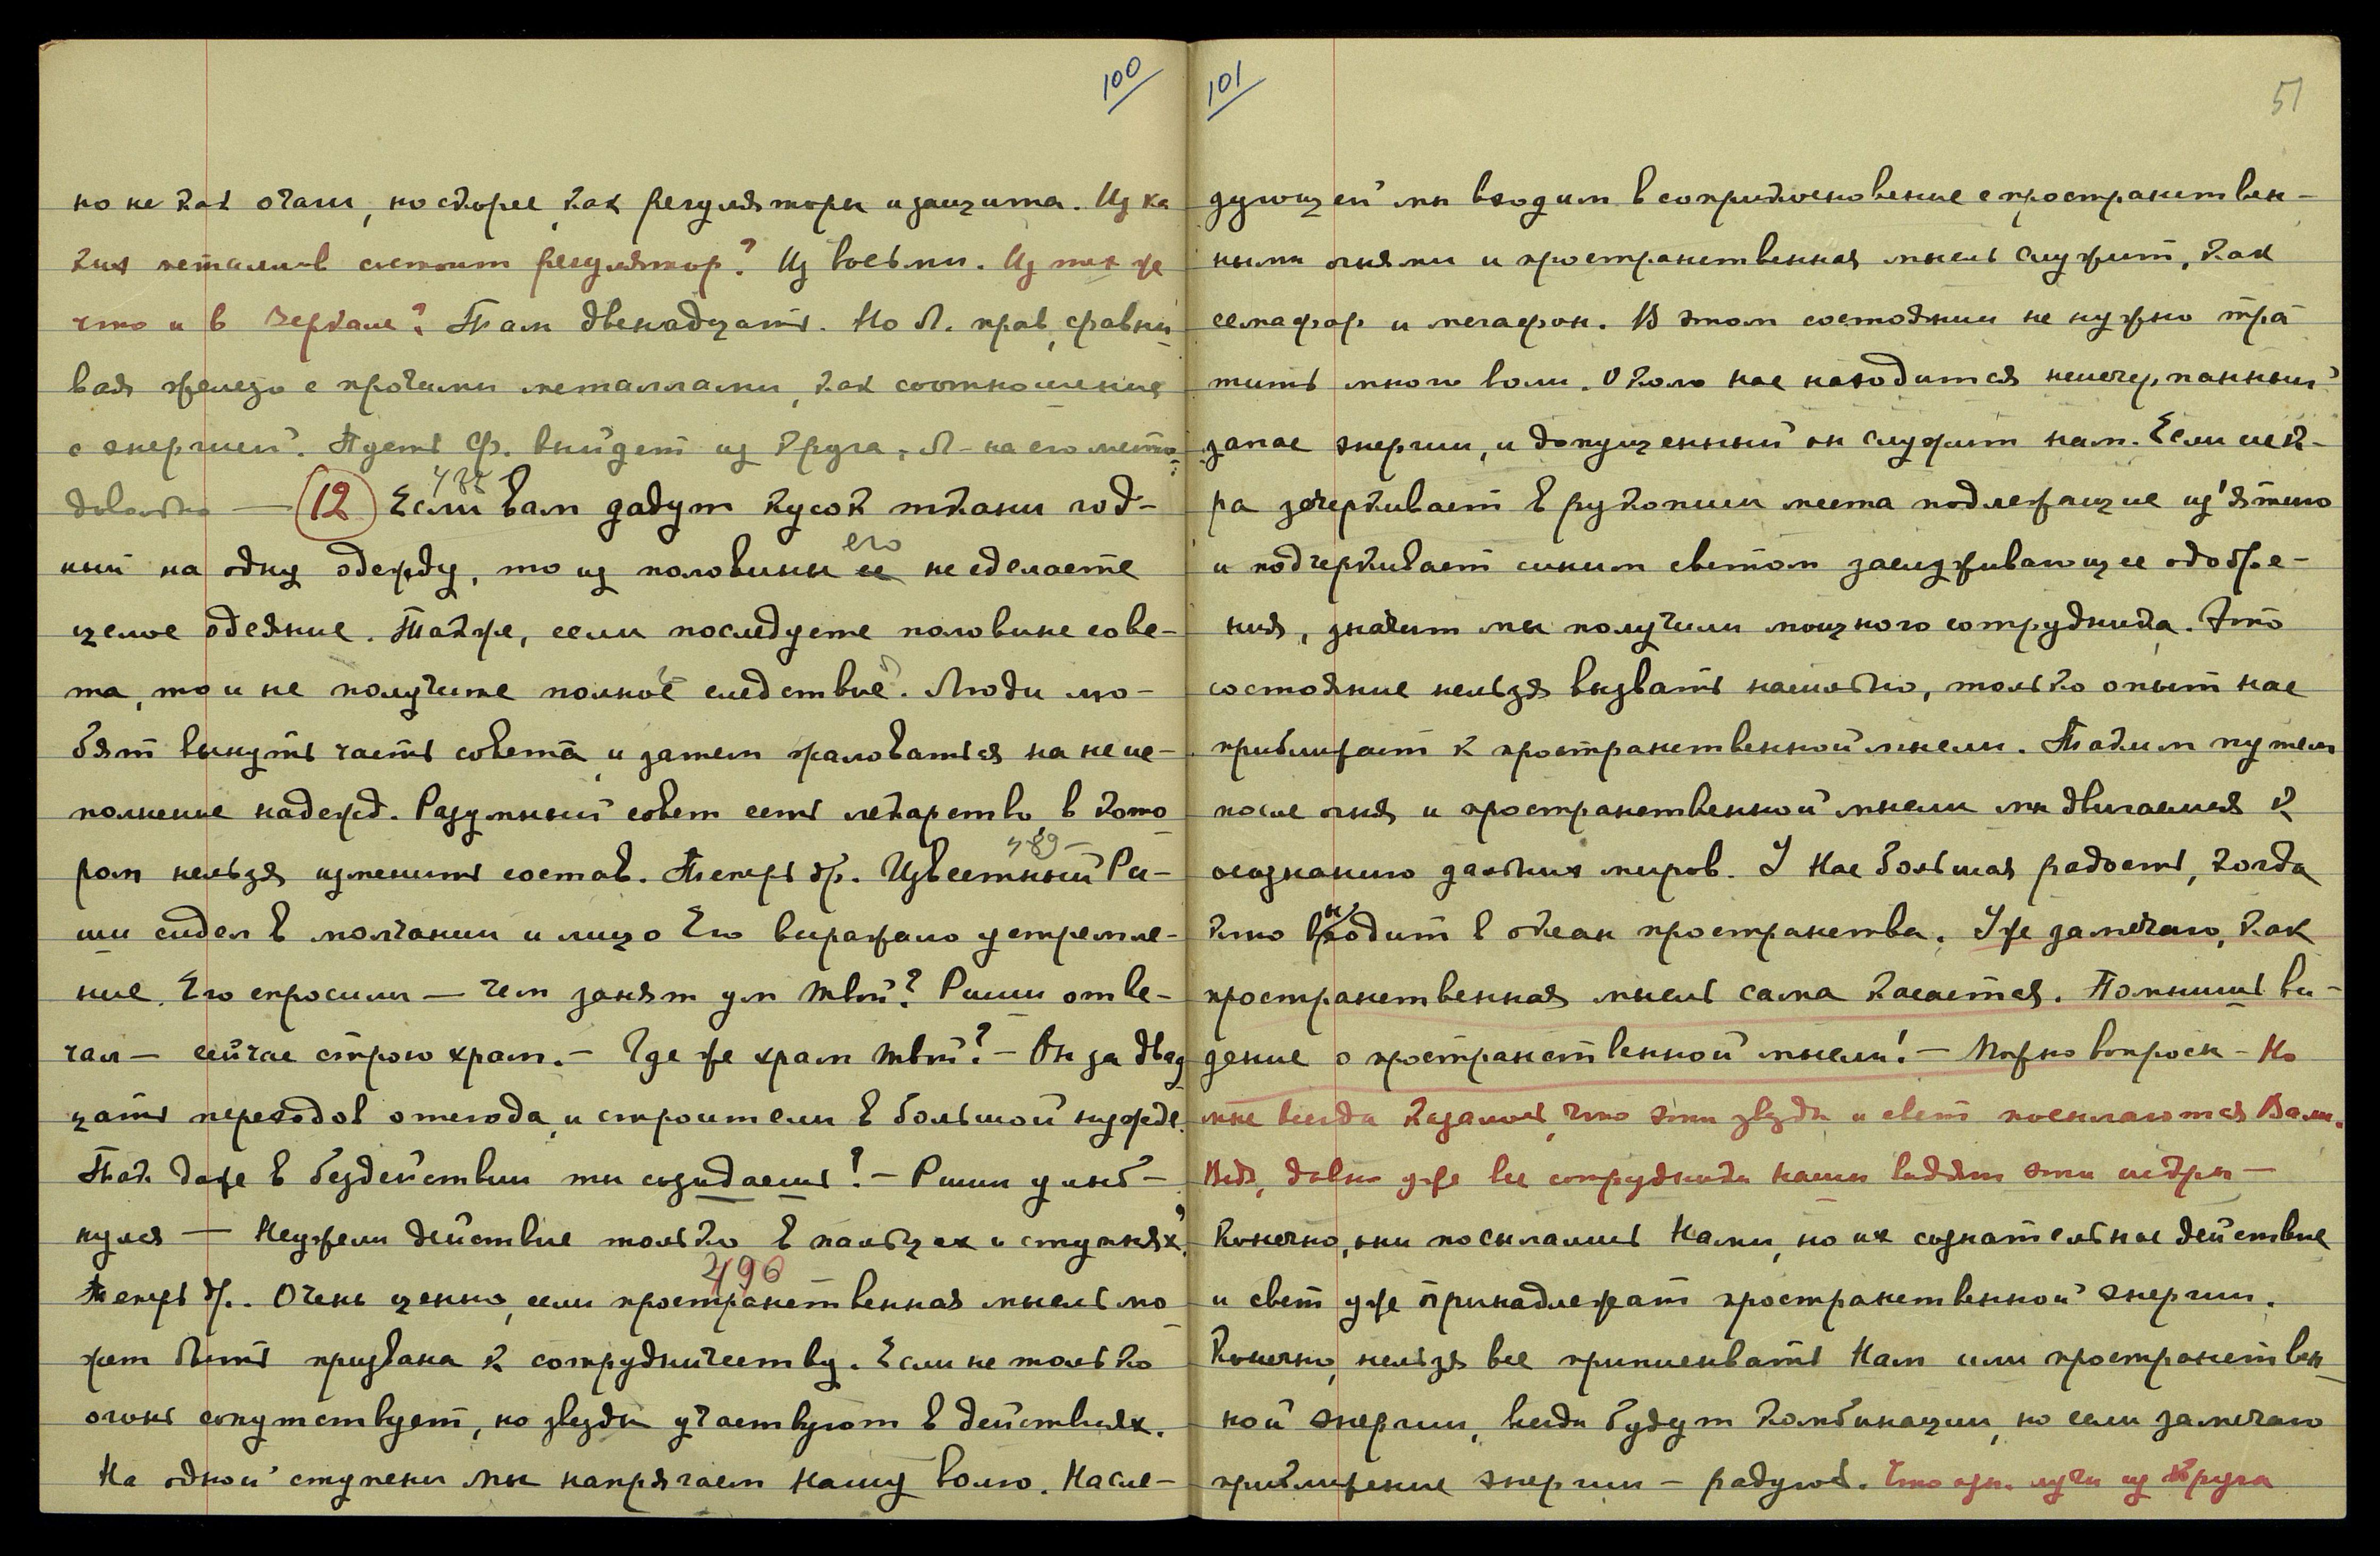 100
но не как очаги, но скорее, как регуляторы и защита. Из ка
ких металлов состоит регулятор? Из восьми. Из тех же
что и в Зеркале? Там двенадцать. Но Л. прав, сравни
вая железо с прочими металлами, как соотношение
с энергией. Пусть Ф. выйдет из Круга, Л - на его место.
довольно — (12) Если вам дадут кусок ткани год-
ный на одну одежду, то из половины ее его не сделаете
целое одеяние. Также, если последуете половине сове-
та, то и не получите полное следствие. Люди лю-
бят вынуть часть совета, и затем жаловаться на неис-
полнение надежд. Разумный совет есть лекарство, в кото
489 —
ром нельзя изменить состав. Теперь др. Известный Ри-
ши сидел в молчании и лицо Его выражало устремле-
ние. Его спросили — чем занят ум твой? Риши отве-
чал — сейчас строю храм. — Где же храм твой? — Он за двад
цать переходов отсюда, и строители в большой нужде.
Так даже в бездействии ты созидаешь! — Риши улыб-
нулся — Неужели действие только в пальцах и ступнях?
490
Теперь др. Очень ценно, если пространственная мысль мо
жет быть призвана к сотрудничеству. Если не только
огонь сопутствует, но звезды участвуют в действиях.
На одной ступени мы напрягаем нашу волю. На сле-
101
51
дующей мы входим в соприкосновение с пространствен-
ными огнями и пространственная мысль служит, как
семафор и мегафон. В этом состоянии не нужно тра
тить много воли. Около нас находится неисчерпанный
запас энергии, и допущенный он служит нам. Если иск-
ра зачеркивает в рукописи места подлежащие из'ятию
и подчеркивает синим светом заслуживающее одобре-
ния, значит мы получили мощного сотрудника. Это
состояние нельзя вызвать насильно, только опыт нас
приближает к пространственной мысли. Таким путем
после огня и пространственной мысли мы двигаемся к
осознанию дальних миров. У Нас большая радость, когда
кто входит в океан пространства. Уже замечаю, как
пространственная мысль сама касается. Помнишь ви-
дение о пространственной мысли! — Можно вопросы — Но
мне всегда казалось, что эти звезды и свет посылаются Вами.
Ведь, давно уже все сотрудники наши видят эти искры —
Конечно, они посылались Нами, но их сознательное действие
и свет уже принадлежат пространственной энергии.
Конечно, нельзя все приписывать Нам или пространствен
ной энергии, всегда будут комбинации, но если замечаю
приближение энергии — радуюсь. лучи из Круга